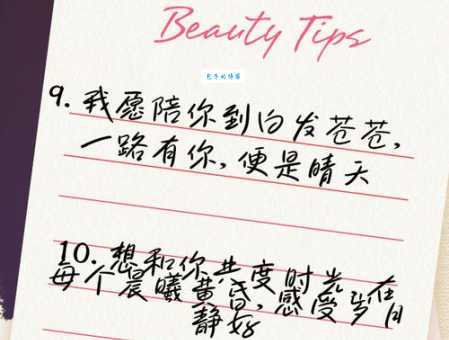 Beauty Tips
9. 我愿陪你到白发苍苍,
一路有你,便是晴天
10. 想和你共度时光在
每个晨曦黄昏,感受岁月
静好